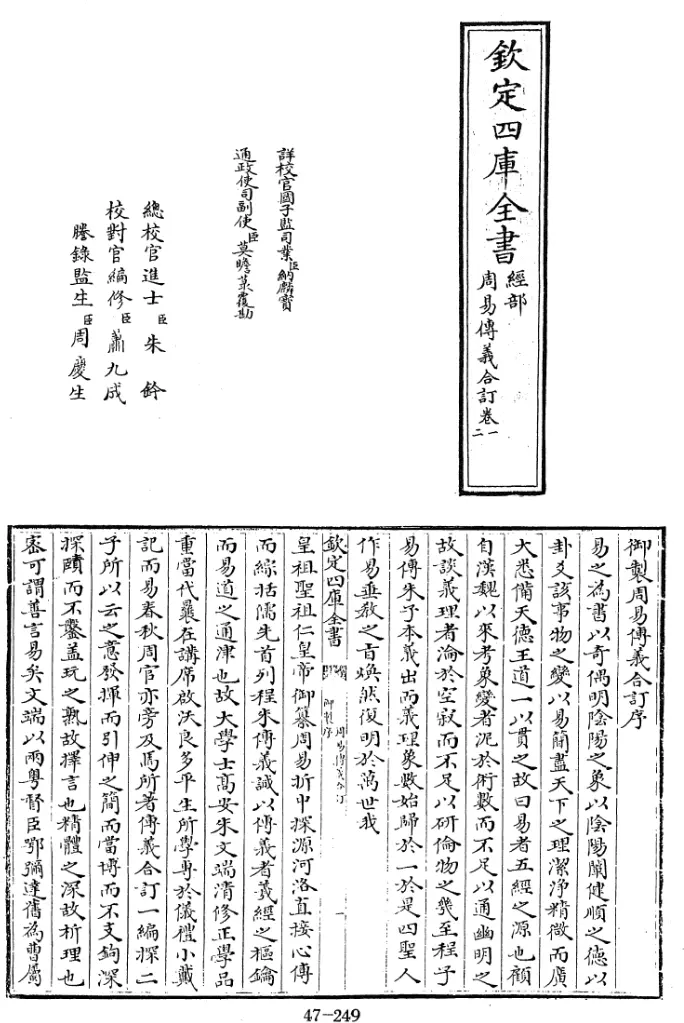 欽定四庫全書
經部
周易傳義合訂卷一
二
詳校官國子監司業臣納麟寶
通政使司副使臣莫瞻菉覆勘
總校官進士臣朱鈐
校對官編修臣蕭九成
謄錄監生臣周慶生
御製周易傳義合訂序
易之為書以奇偶明陰陽之象以陰陽闡健順之德以
卦爻該事物之變以易簡盡天下之理潔淨精微而廣
大悉備天德王道一以貫之故曰易者五經之源也顧
自漢魏以來考象變者泥於術數而不足以通幽明之
故談義理者淪於空寂而不足以研倫物之幾至程子
易傳朱子本義出而義理象數始歸於一於是四聖人
作易垂教之旨煥然復明於萬世我
欽定四庫全書
御製序
周易傳義合訂
一
皇祖聖祖仁皇帝御纂周易折中探源河洛直接心傳
而綜括儒先首列程朱傳義誠以傳義者羲經之樞鑰
而易道之通津也故大學士高安朱文端清修正學品
重當代曩在講席啟沃良多平生所學專於儀禮小戴
記而易春秋周官亦旁及焉所著傳義合訂一編探二
子所以云之意發揮而引伸之簡而當博而不支鉤深
探賾而不鑿蓋玩之熟故擇言也精體之深故析理也
密可謂善言易矣文端以兩粵督臣鄂彌達舊為曹屬
47-249